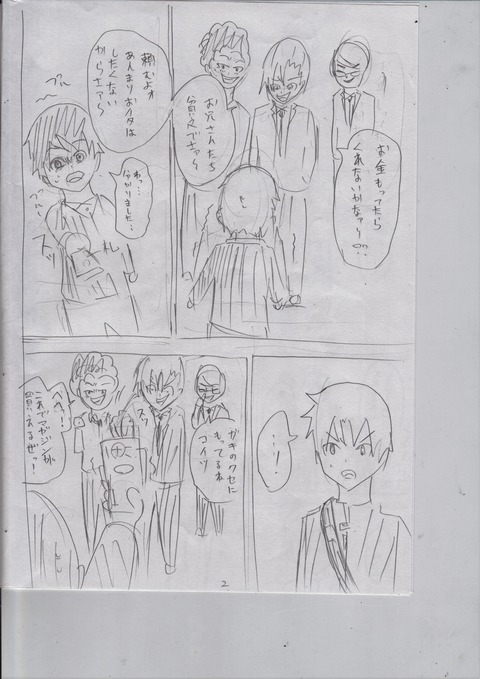 お金もってたら
くれないかなァ〜??
お穴さんたち
貧乏でさァ〜
頼むよォ
あんまりおイタは
したくない
からさァ〜
ブル
わ、…
分かりました…
ブル
スッ
札
…!
ガキのクセに
もってるね
コイツ
スッ
へへ!
これでマガジンが
買えるぜッ!
2